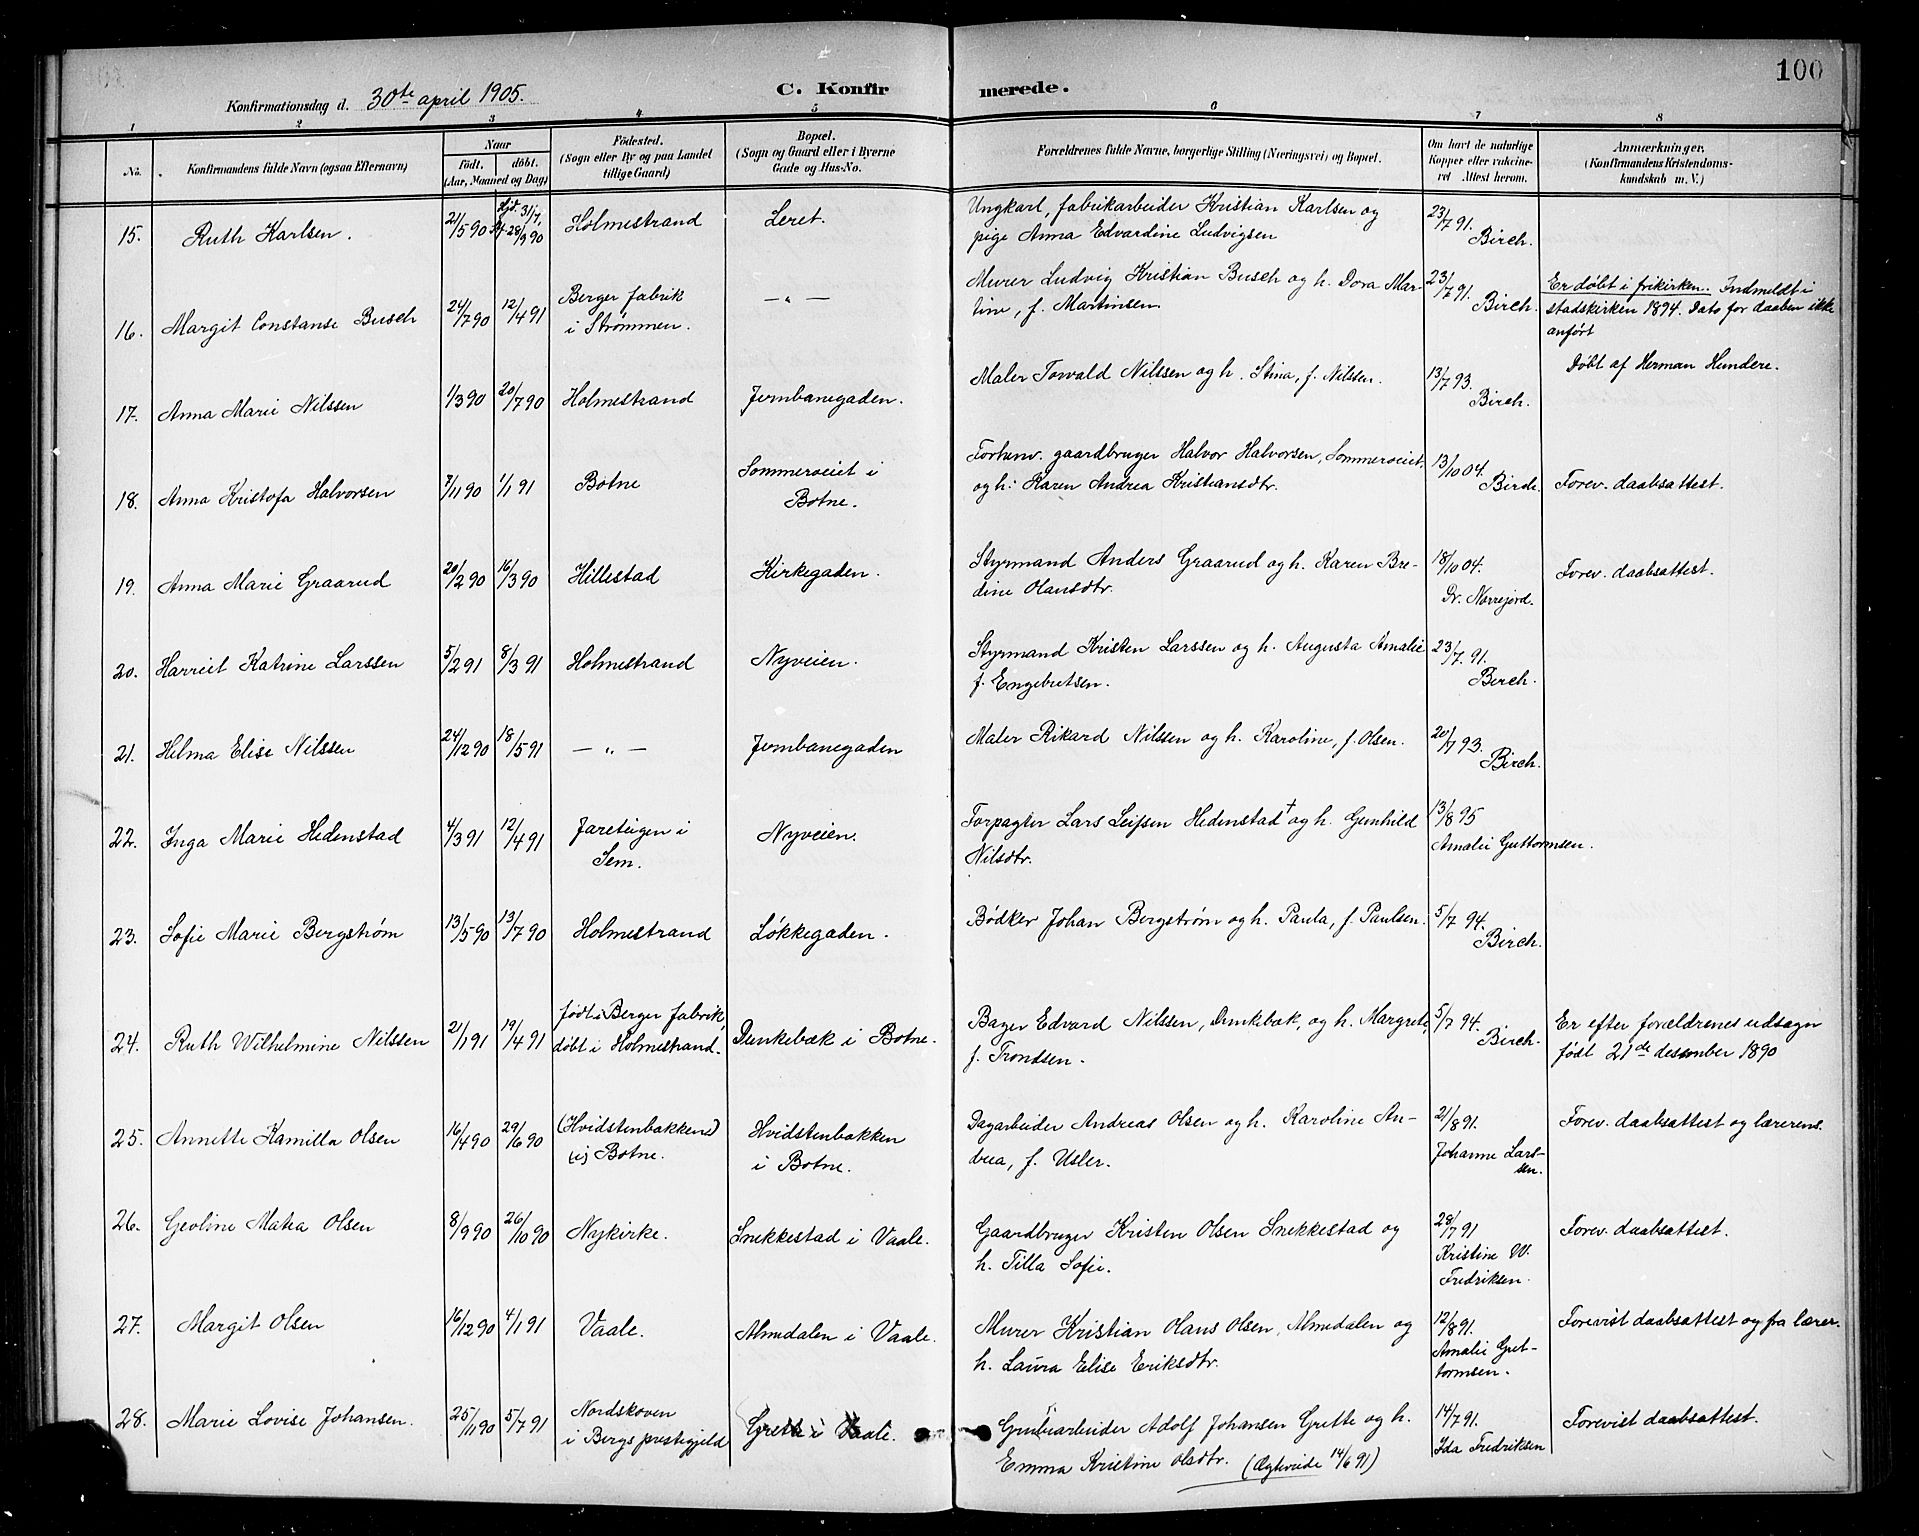 100
Konfirmationsdag d. 30te april 1905.
C. Konfirmerede.
1 2 3 4 5 6 7 8
No.
Konfirmandens fulde Navn (ogsaa Efternavn)
Naar
født. døbt.
(Aar, Maaned og Dag)
Fødested.
(Sogn eller By og paa Landet
tillige Gaard)
Bopæl.
(Sogn og Gaard eller i Byerne
Gade og Hus-No.
Forældrenes fulde Navne, borgerlige Stilling (Næringsvei) og Bopæl.
Om havt de naturlige
Kopper eller vakcine-
ret Attest herom.
Anmærkninger,
(Konfirmandens Kristendoms-
kundskab m. V.)
15. Ruth Karlsen. 21/5 90 Hjd. 31/7, 28/9 90 Holmestrand Leret. Ungkarl, fabrikarbeider Kristian Karlsen og
pige Anna Edvardine Ludvigsen 23/7 91. Birch.
16. Margit Constanse Busch 24/7 90 12/4 91 Berger fabrik
i Strømmen. — „ — Murer Ludvig Kristian Busch og h. Dora Mar-
tine, f. Martinsen 23/7 91. Birch. Er døbt i frikirken. Indmeldt i
statskirken 1894. Dato for daaben ikke
anført
Døbt af Herman Hundere.
17. Anna Marie Nilssen 1/3 90 20/7 90 Holmestrand Jernbanegaden. Maler Torvald Nilssen og h. Stina, f. Nilssen. 13/7 93. Birch.
18. Anna Kristofa Halvorsen 7/11 90 1/1 91 Botne Sommerveiet i
Botne. Forhenv. gaardbruger Halvor Halvorsen, Sommerveiet,
og h. Karen Andrea Kristiansdtr. 13/10 04. Birch. Forev. daabsattest.
19. Anna Marie Graarud 20/2 90 16/3 90 Hillestad Kirkegaden. Styrmand Anders Graarud og h. Karen Bre-
dine Olausdtr. 18/10 04. Dr. Nørrejord. Forev. daabsattest.
20. Harriet Katrine Larssen 5/2 91 8/3 91 Holmestrand Nyveien. Styrmand Kristen Larssen og h. Augusta Amalie
f. Engebretsen. 23/7 91. Birch.
21. Hilma Elise Nilssen 24/12 90 18/5 91 — „ — Jernbanegaden Maler Rikard Nilssen og h. Karoline, f. Olsen. 20/7 93. Birch.
22. Inga Marie Hedenstad 4/3 91 12/4 91 Jareteigen i
Sem. Nyveien. Forpagter Lars Leifsen Hedenstad † og h. Gunhild
Nilsdtr. 13/8 95
Amalie Guttormsen.
23. Sofie Marie Bergstrøm 13/5 90 13/7 90 Holmestrand Løkkegaden. Bødker Johan Bergstrøm og h. Paula, f. Paulsen. 5/7 94. Birch.
24. Ruth Wilhelmine Nilssen 21/1 91 19/4 91 født i Berger fabrik,
døbt i Holmestrand. Dunkebæk i Botne. Bager Edvard Nilssen, Dunkebæk, og h. Margrete,
f. Trondsen. 5/7 94. Birch. Er efter forældrenes udsagn
født 21de desember 1890
25. Annette Kamilla Olsen 16/4 90 29/6 90 (Hvidstenbakken)
(i) Botne. Hvidstenbakken
i Botne. Dagarbeider Andreas Olsen og h. Karoline An-
drea, f. Usler. 21/8 91.
Johanne Lars-
sen. Forev. daabsattest og lærerens.
26. Gevline Matea Olsen 8/9 90 26/10 90 Nykirke. Snekkestad i Vaale. Gaardbruger Kristen Olsen Snekkestad og
h. Tilla Sofie. 28/7 91
Kristine W.
Fredriksen. Forev. daabsattest.
27. Margit Olsen 16/12 90 4/1 91 Vaale. Almedalen i Vaale. Murer Kristian Olaus Olsen, Almedalen og
h. Laura Elise Eriksdtr. 12/8 91.
Amalie Gut-
tormsen. Forevist daabsattest og fra lærer.
28. Marie Lovise Johansen. 25/11 90 5/7 91 Nordskoven
i Bergs prestegjeld Grette i Vaale. Grubearbeider Adolf Johansen Grette og h.
Emma Kristine Olsdtr. (Ægteviede 14/6 91) 14/7 91.
Ida Fredriksen Forevist daabsattest.